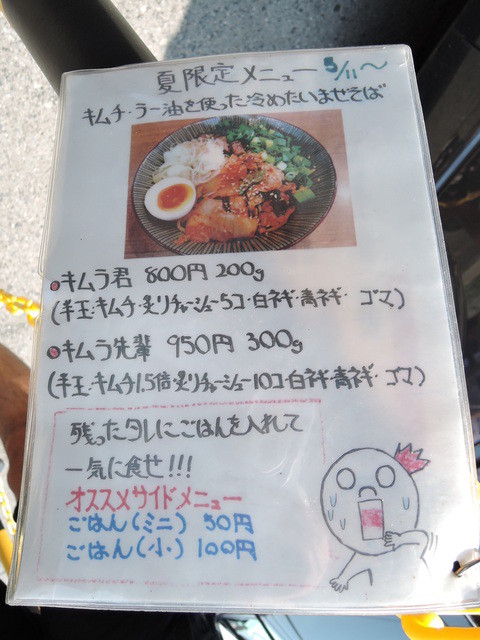 夏限定メニュー 5/11〜
キムチ・ラー油を使った冷めたいまぜそば
キムラ君 800円 200g
(半玉・キムチ・炙りチャーシュー5コ・白ネギ・青ネギ・ゴマ)
キムラ先輩 950円 300g
(半玉・キムチ1.5倍・炙りチャーシュー10コ・白ネギ・青ネギ・ゴマ)
残ったタレにごはんを入れて
一気に食せ!!!
オススメサイドメニュー
ごはん(ミニ) 50円
ごはん(小) 100円